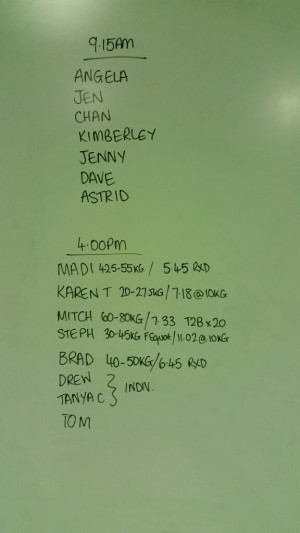 9.15AM
ANGELA
JEN
CHAN
KIMBERLEY
JENNY
DAVE
ASTRID
4.00PM
MADI 42.5-55KG / 5.45 RXD
KAREN T 20-27.5KG/7.18@10KG
MITCH 60-80KG/7.33 T2B x 20
STEPH 30-45KG FSquat/11.02@10KG
BRAD 40-50KG/6.45 RXD
DREW
TANYA C } INDIV.
TOM